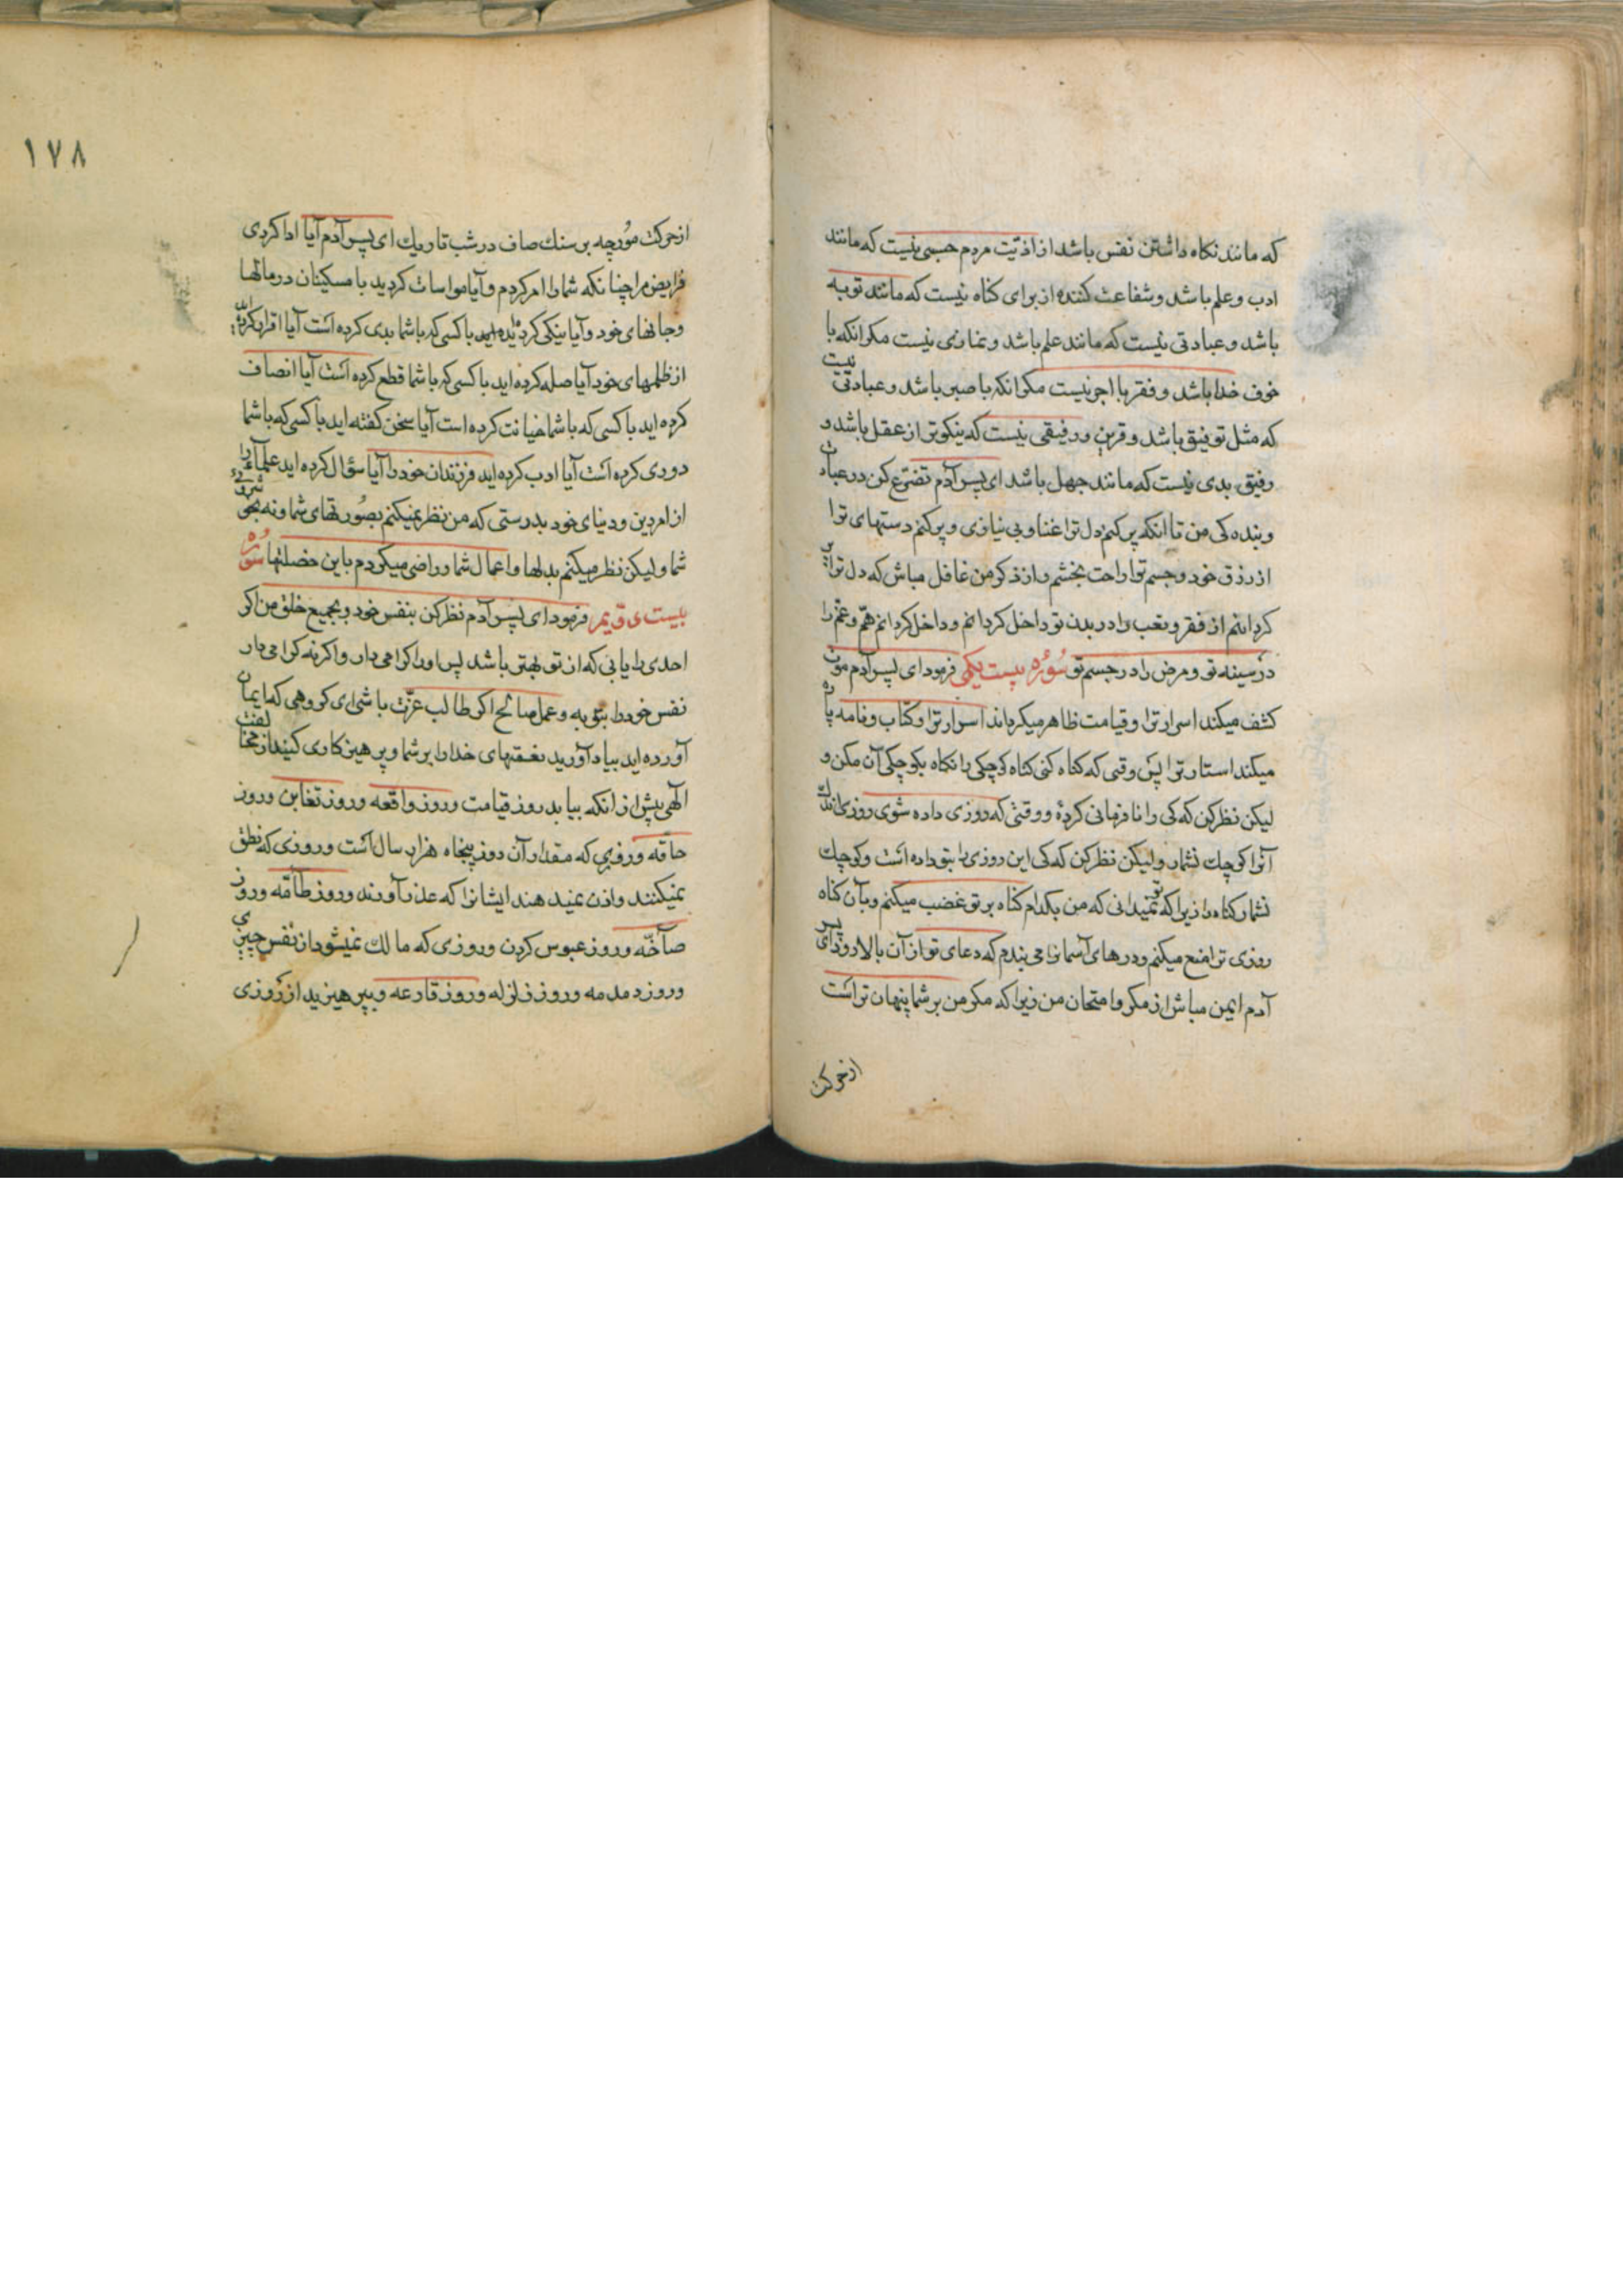 که مانند نکاه داشتن نفس باشد از اذیّت مردم حسبی نیست که مانند
ادب و علم باشد و شفاعت کننده از برای کناه نیست که مانند توبه
باشد و عبادتی نیست که مانند علم باشد و نمازی نیست مکر انکه با
خوف خدا باشد و فقر با اجر نیست مکر انکه با صبر باشد و عبادتی نیست
که مثل توفیق باشد و قرین و رفیقی نیست که نیکوتر از عقل باشد و
رفیق بدی نیست که مانند جهل باشد ای پسر آدم تضرّع کن در عبادت
و بنده کی من تا انکه پر کنم دل ترا غنا و بی نیازی و پر کنم دستهای ترا
از رزق خود و جسم ترا راحت بخشم و از ذکر من غافل مباش که دل ترا پر
کردانم از فقر و تعب را در بدن تو داخل کردانم و داخل کردانم همّ و غم را
در سینه تو و مرض را در جسم تو سُورُه بیست یکمی فرمود ای پسر آدم موت
کشف میکند اسرار ترا و قیامت ظاهر میکرداند اسرار ترا و کتاب و نامه پاره
میکند استار ترا پس وقتی که کناه کنی کناه کوچکی را نکاه بکوچکی آن مکن و
لیکن نظر کن که کی را نافرمانی کردهٔ و وقتی که روزی داده شوی روزی اندک
آنرا کوچک نشمار ولیکن نظر کن که کی این روزی را بتو داده است و کوچک
نشمار کناه را زیرا که تو نمیدانی که من بکدام کناه بر تو غضب میکنم و بآن کناه
روزی ترا منع میکنم و درهای آسمانرا می بندم که دعای تو از آن بالا رود ای پسر
آدم ایمن مباش از مکر و امتحان من زیرا که مکر من بر شما پنهان تر است
از حرکت
١٧٨
از حرکت مُورچه بر سنک صاف در شب تاریک ای پسر آدم آیا ادا کردی
فرایض مرا چنانکه شما را امر کردم و آیا مواسات کردید با مسکینان در مالها
و جانهای خود و آیا نیکی کرده اید با کسی که با شما بدی کرده است آیا اقرار کرده اید
از ظلمهای خود آیا صله کرده اید با کسی که با شما قطع کرده است آیا انصاف
کرده اید با کسی که با شما خیانت کرده است آیا سخن کفته اید با کسی که با شما
دوری کرده است آیا ادب کرده اید فرزندان خود را آیا سؤال کرده اید علمآء را
از امر دین و دنیای خود بدرستی که من نظر نمیکنم بصُورتهای شما و نه بخوبی
شما ولیکن نظر میکنم بدلها و اعمال شما و راضی میکردم باین خصلتها سُوره
بیست دوّیم فرمود ای پسر آدم نظر کن بنفس خود و بجمیع خلق من اکر
احدی را یابی که از تو بهتر باشد پس او را کرامی دار و اکر نه کرامی دار
نفس خود را بتوبه و عمل صالح اکر طالب عزّت باشی ای کروهی که ایمان
آورده اید بیاد آورید نعمتهای خدا را بر شما و پرهیزکاری کنید از مخالفت
الهی پیش از انکه بیاید روز قیامت و روز واقعه و روز تغابن و روز
حاقه و روزی که مقدار آن روز پنجاه هزار سال است و روزی که نطق
نمیکنند و اذن نمیدهند ایشانرا که عذر آورند و روز طآمّه و روز
صآخّه و روز عبوس کردن و روزی که مالک نمیشود از نفس چیزی
و روز دمدمه و روز زلزله و روز قارعه و بپرهیزید از روزی